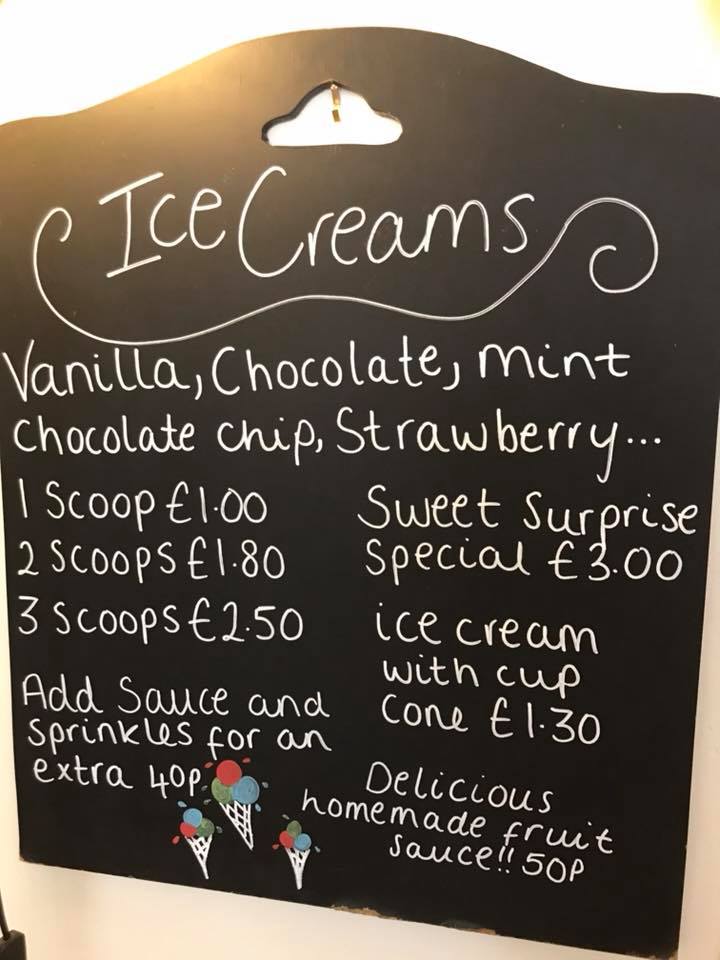 Ice Creams
Vanilla, Chocolate, mint
chocolate chip, Strawberry...
1 Scoop £1.00
2 Scoops £1.80
3 Scoops £2.50
Add Sauce and
sprinkles for an
extra 40p
Sweet Surprise
Special £3.00
ice cream
with cup
Cone £1.30
Delicious
homemade fruit
sauce!! 50p